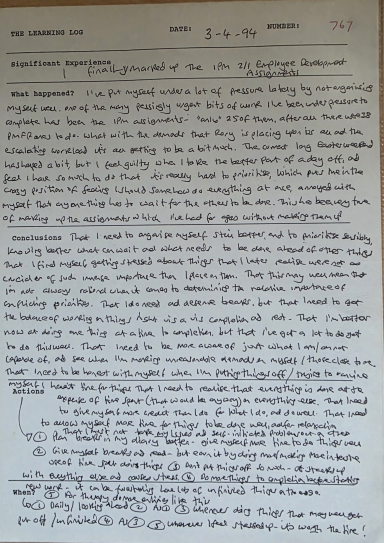 THE LEARNING LOG DATE: 3-4-94 NUMBER: 767
Significant Experience
I finally marked up The IPM 2/1 Employee Development
Assignments
What happened? I've put myself under a lot of pressure lately by not organising
myself well. One of the many pressingly urgent bits of work I've been under pressure to
complete has been the IPM assignments - 'only' 25 of them, after all there were 28
to do. What with the demands that Rory is placing upon us and the
escalating workload it's all getting to be a bit much. The current long Easter weekend
has helped a bit, but I feel guilty when I take the better part of a day off, and
feel I have so much to do that it's really hard to prioritise, which puts me in the
crazy position of feeling I should somehow do everything at once, annoyed with
myself that anything has to wait for the others to be done. This has been very true
of marking up the assignments which I've had for ages without marking them up
Conclusions That I need to organise myself better, and to prioritise sensibly,
knowing better what can wait and what needs to be done ahead of other things
that I find myself getting stressed about things that I later realise were not as
crucial or of such unique importance than I place on them. That this may well mean that
I'm not always rational when it comes to determining the relative importance of
conflicting priorities. That I do need and deserve breaks, but that I need to get
the balance of working on things right vis a vis completion and rest. That I'm better
now at doing one thing at a time to completion, but that I've got a lot to do yet
to do this well. That I need to be more aware of just what I am/am not
capable of, and see when I'm making unreasonable demands on myself/those close to me.
That I need to be honest with myself when I'm putting things off / trying to convince
myself I haven't time for things. That I need to realise that everything is done at the
expense of time spent (that would be anyway) on everything else. That I need
to give myself more credit than I do for what I do, and do well. That I need
to allow myself more time for things to be done well, and for relaxation
Actions That I must not
① Plan breaks in my diary better - give myself more time to do things well
② Give myself breaks and rest - but earn it by doing more/making more intensive
use of time spent doing things ③ And put things off so much - it stresses me up
with everything else and causes stress ④ Do more things to completion before starting
new work - it can be frustrating have lots of unfinished things around
When? ⑤ For therapy do more entries like this
① Daily/looking ahead ② As ① ③ Whenever doing things that may well get
put off/unfinished ④ As ③ ⑤ Whenever I feel stressed up - it's worth the time!